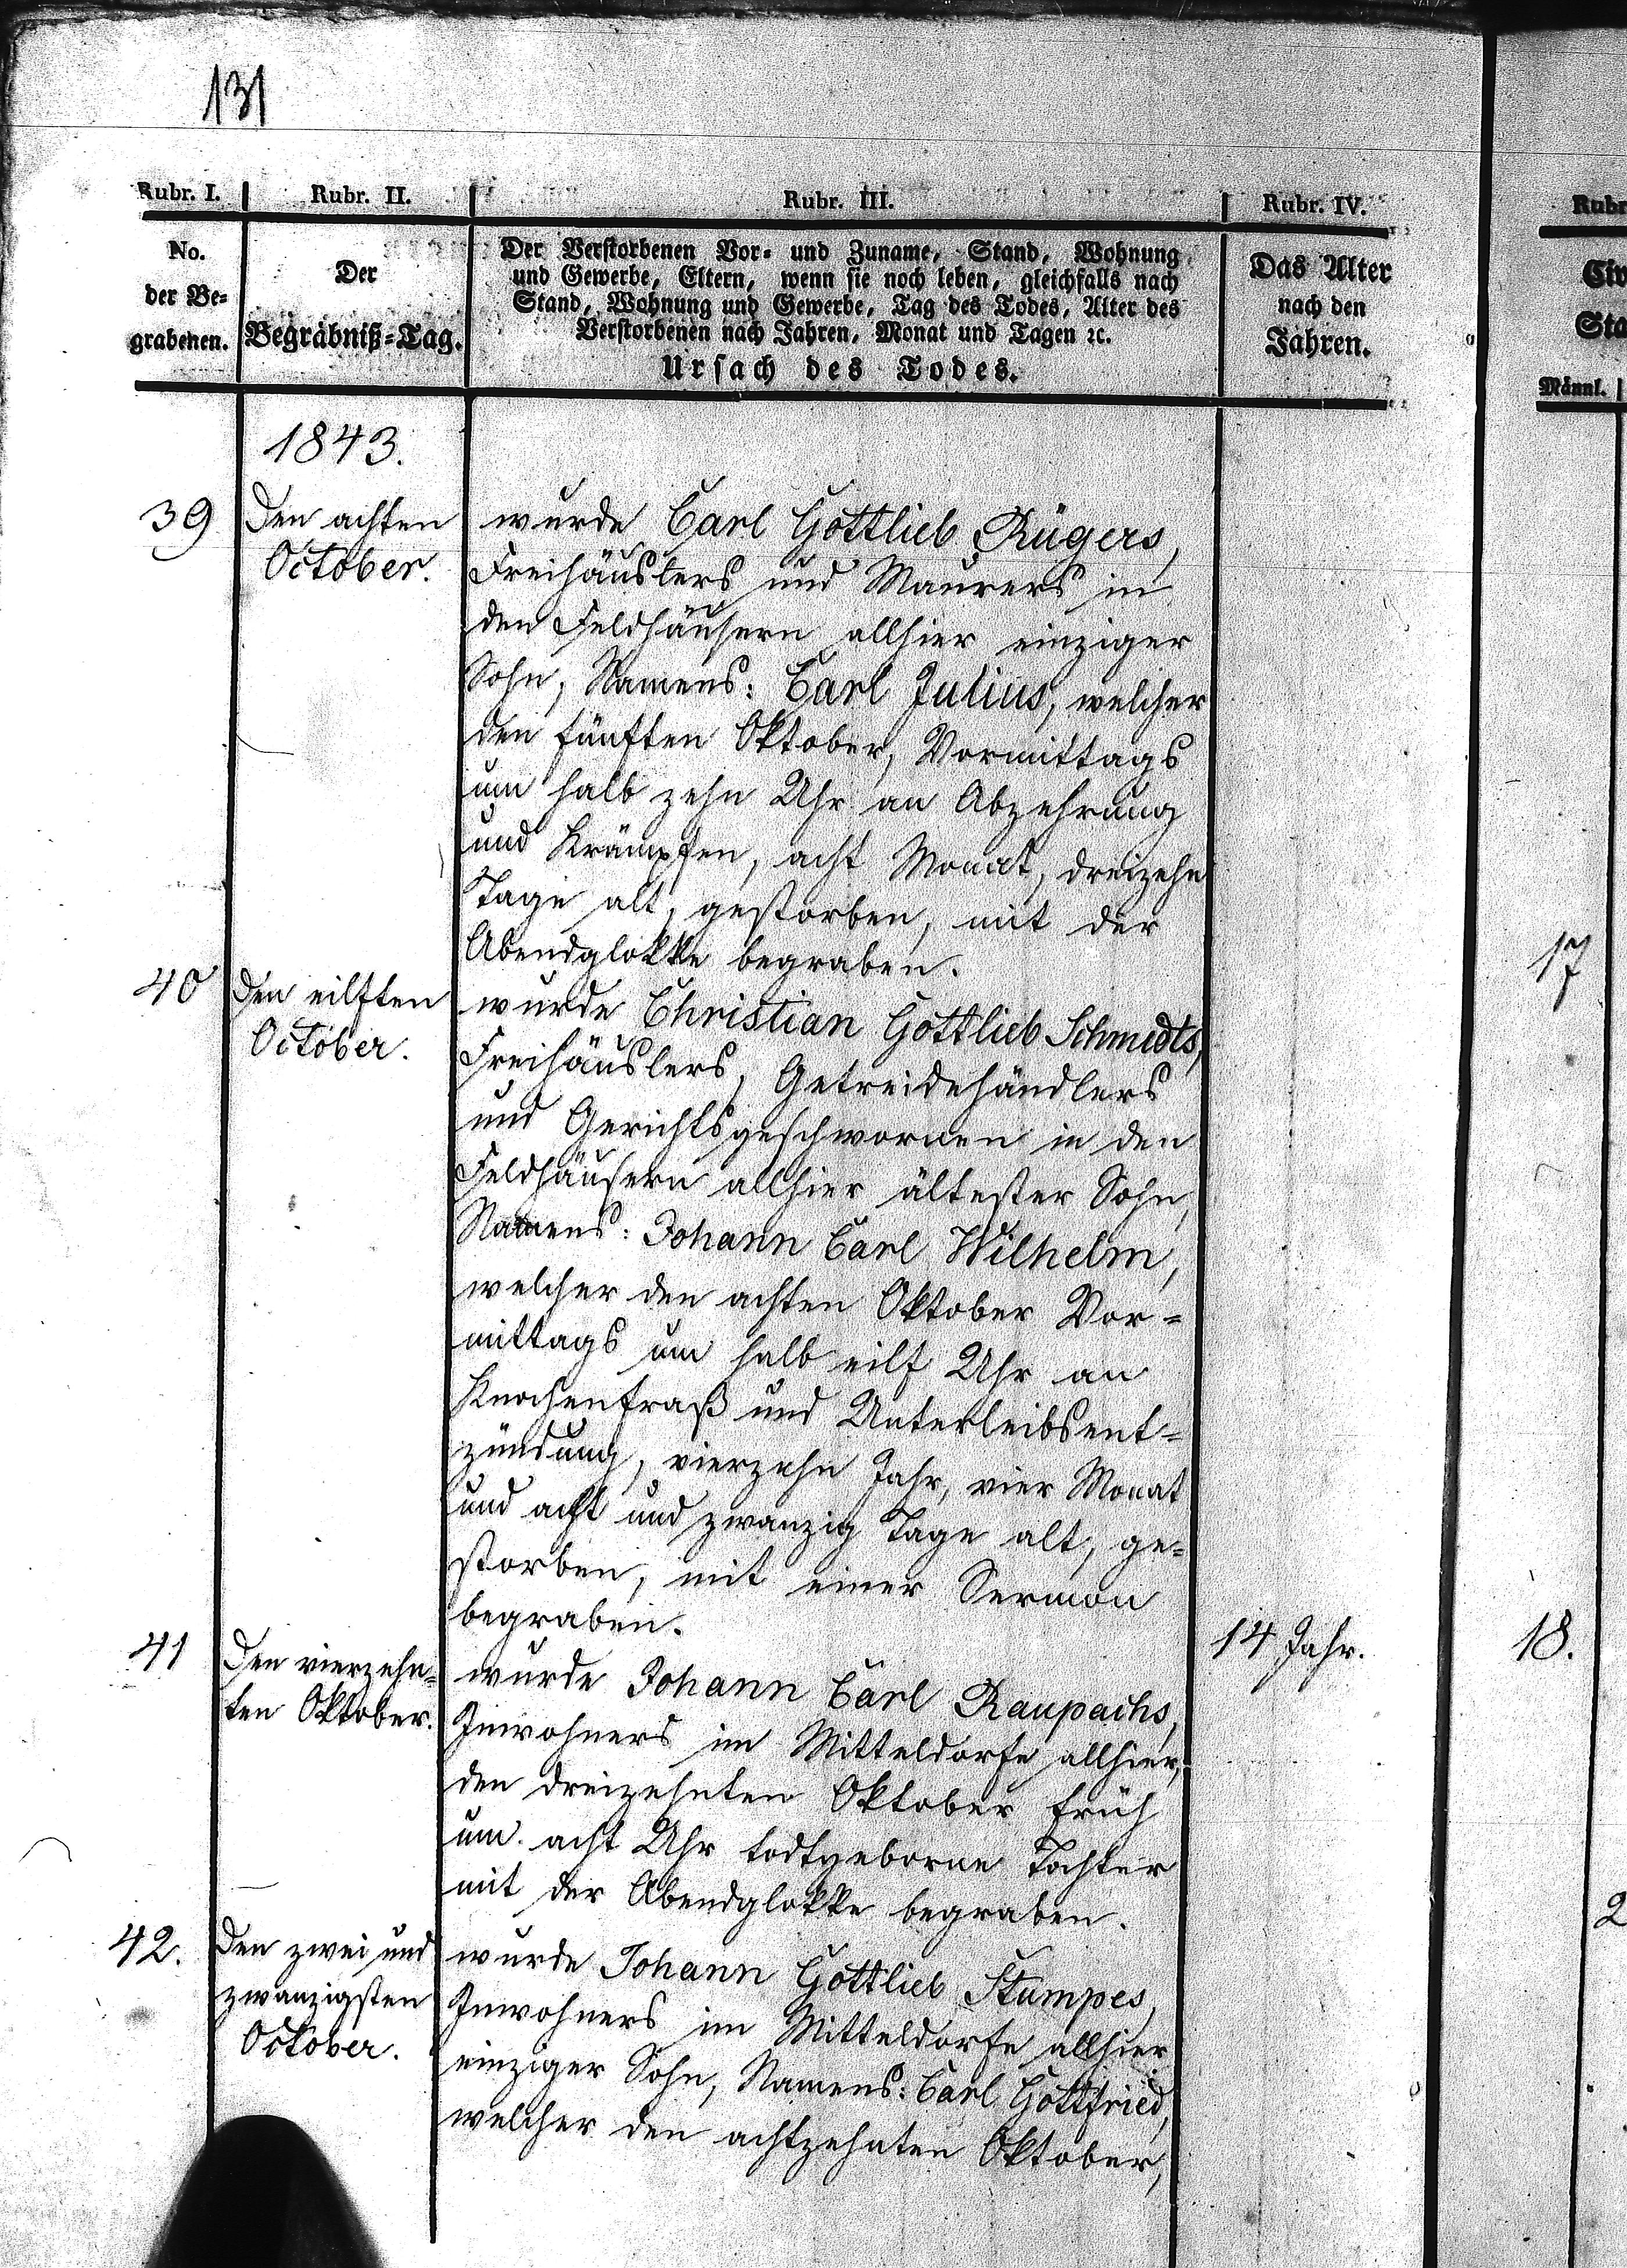 131
Rubr. I. Rubr. II. Rubr. III. Rubr. IV.
No.
der Be-
grabenen.
Der
Begräbniß-Tag.
Der Verstorbenen Vor- und Zuname, Stand, Wohnung
und Gewerbe, Eltern, wenn sie noch leben, gleichfalls nach
Stand, Wohnung und Gewerbe, Tag des Todes, Alter des
Verstorbenen nach Jahren, Monat und Tagen ꝛc.
Ursach des Todes.
Das Alter
nach den
Jahren.
Männl.
1843.
39
Den achten
October.
wurde Carl Gottlieb Rügers,
Freihäuslers und Maurers in
den Feldhäusern allhier einziger
Sohn, Namens: Carl Julius, welcher
den fünften Oktober, Vormittags
um halb zehn Uhr an Abzehrung
und Krämpfen, acht Monat, dreizehn
Tage alt, gestorben, mit der
Abendglokke begraben.
17
40
Den eilften
October.
wurde Christian Gottlieb Schmidts,
Freihäuslers, Getreidehändlers
und Gerichtsgeschwornen in den
Feldhäusern allhier ältester Sohn,
Namens: Johann Carl Wilhelm,
welcher den achten Oktober Vor-
mittags um halb eilf Uhr an
Knochenfraß und Unterleibsent-
zündung, vierzehn Jahr, vier Monat
und acht und zwanzig Tage alt, ge-
storben, mit einer Sermon
begraben.
14 Jahr.
18.
41
Den vierzehn-
ten Oktober.
wurde Johann Carl Raupachs,
Inwohners im Mitteldorfe allhier,
den dreizehnten Oktober früh
um acht Uhr todtgeborne Tochter
mit der Abendglokke begraben.
2
42.
Den zwei und
zwanzigsten
October.
wurde Johann Gottlieb Stumpes,
Inwohners im Mitteldorfe allhier
einziger Sohn, Namens: Carl Gottfried,
welcher den achtzehnten Oktober,